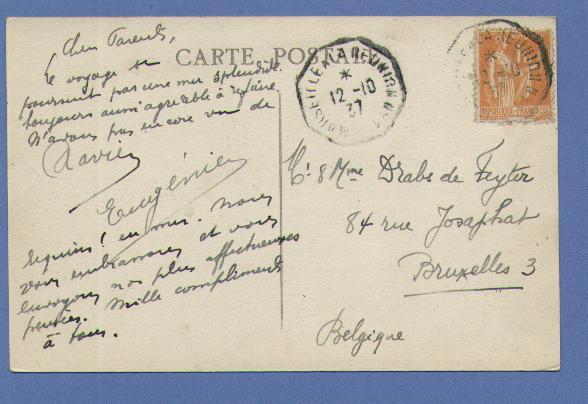 CARTE POSTALE
Chers Parents,
Le voyage se
poursuit par une mer splendide.
toujours aussi agréable à refaire.
N'avons pas encore vu de
Xavier
Eugénie
requins! en mer. Nous
vous embrassons et vous
envoyons nos plus affectueuses
pensées. Mille compliments
à tous.
MARSEILLE A LA REUNION N°1
*
12-10
37
REPUBLIQUE FRANCAISE
Mme Drabs de Feyter
84 rue Josaphat
Bruxelles 3
Belgique